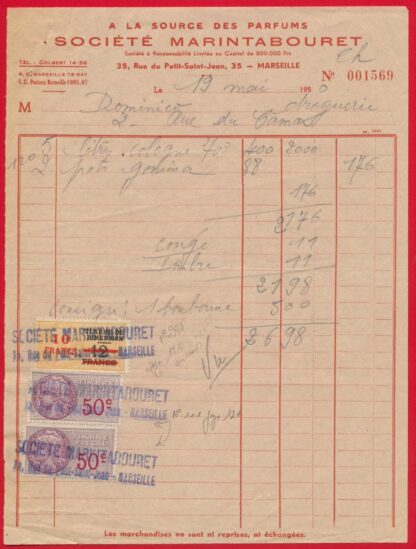 A LA SOURCE DES PARFUMS
SOCIÉTÉ MARINTABOURET
Société à Responsabilité Limitée au Capital de 600.000 Frs
35, Rue du Petit-Saint-Jean, 35 — MARSEILLE
TÉL. : COLBERT 14-36
R. C. MARSEILLE 79-647
C. C. Postaux Marseille
Nº 001569
Le 19 mai 1950
M Dominico Droguerie
2 Rue du Camas
5 litres cologne 70° 400 2000
2 pots gomina 88 176
176
2176
congé 11
timbre 11
2198
consigne 1 bonbonne 500
2698
10 FRANCS
TIMBRE DE DIMENSION
12 FRANCS
SOCIÉTÉ MARINTABOURET
MARSEILLE
50c
SOCIÉTÉ MARINTABOURET
MARSEILLE
50c
SOCIÉTÉ MARINTABOURET
35, Rue du Petit-Saint-Jean - MARSEILLE
Les marchandises ne sont ni reprises, ni échangées.